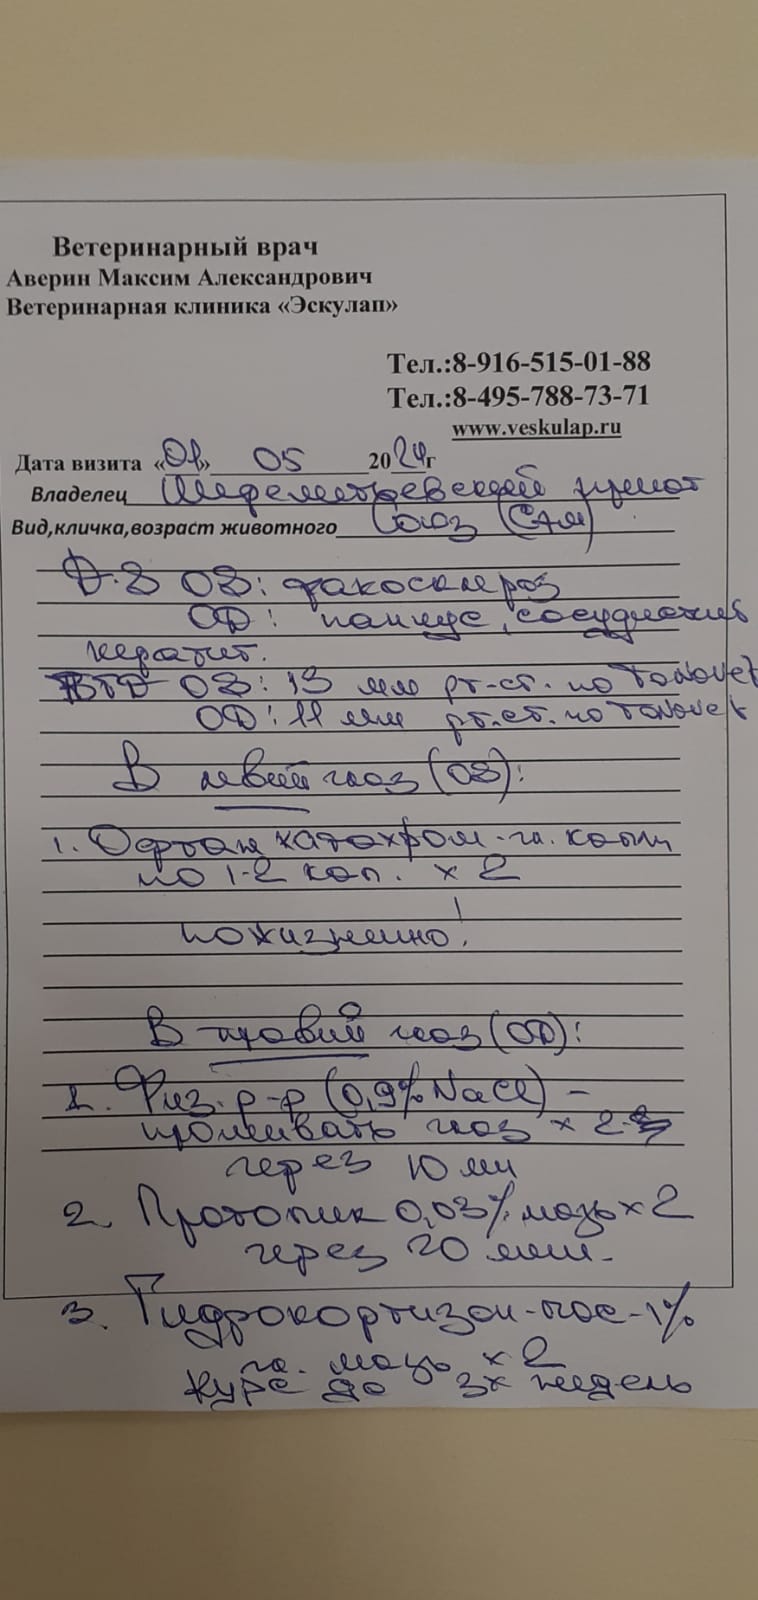 Ветеринарный врач
Аверин Максим Александрович
Ветеринарная клиника «Эскулап»
Тел.:8-916-515-01-88
Тел.:8-495-788-73-71
www.veskulap.ru
Дата визита «01» 05 2024г
Владелец Шереметьевский приют
Вид,кличка,возраст животного Союз (Сам)
D.S OS: факосклероз
OD: паннус, сосудистый
кератит.
ВГД OS: 13 мм рт.ст. по Tonovet
OD: 11 мм рт.ст. по Tonovet
В левый глаз (OS):
1. Офтан катахром - гл. капли
по 1-2 кап. x 2
пожизненно!
В правый глаз (OD):
1. Физ. р-р (0,9% NaCl) -
промывать глаз x 2
через 10 ми
2. Протопик 0,03% мазь x 2
через 20 мин.
3. Гидрокортизон-пос-1%
гл. мазь x 2
курс до 3х недель